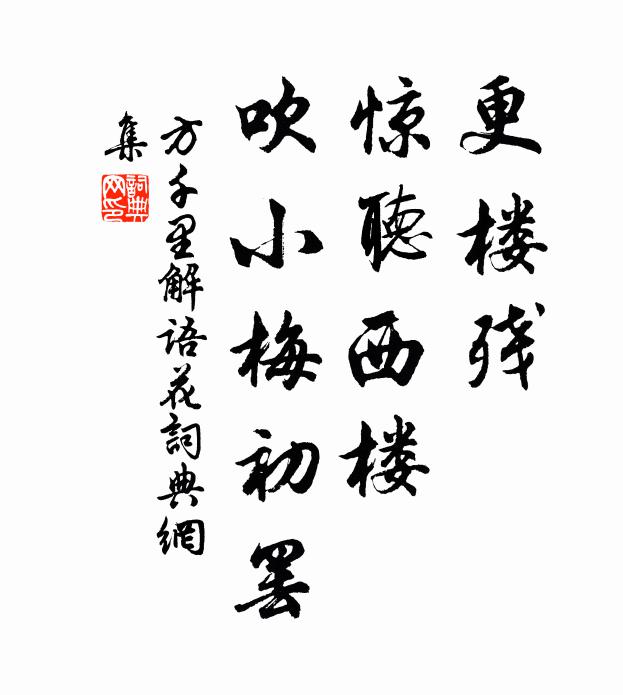 更楼残
惊聽西楼
吹小梅初罢
方千里解語花詞典網
集
詞典
网印